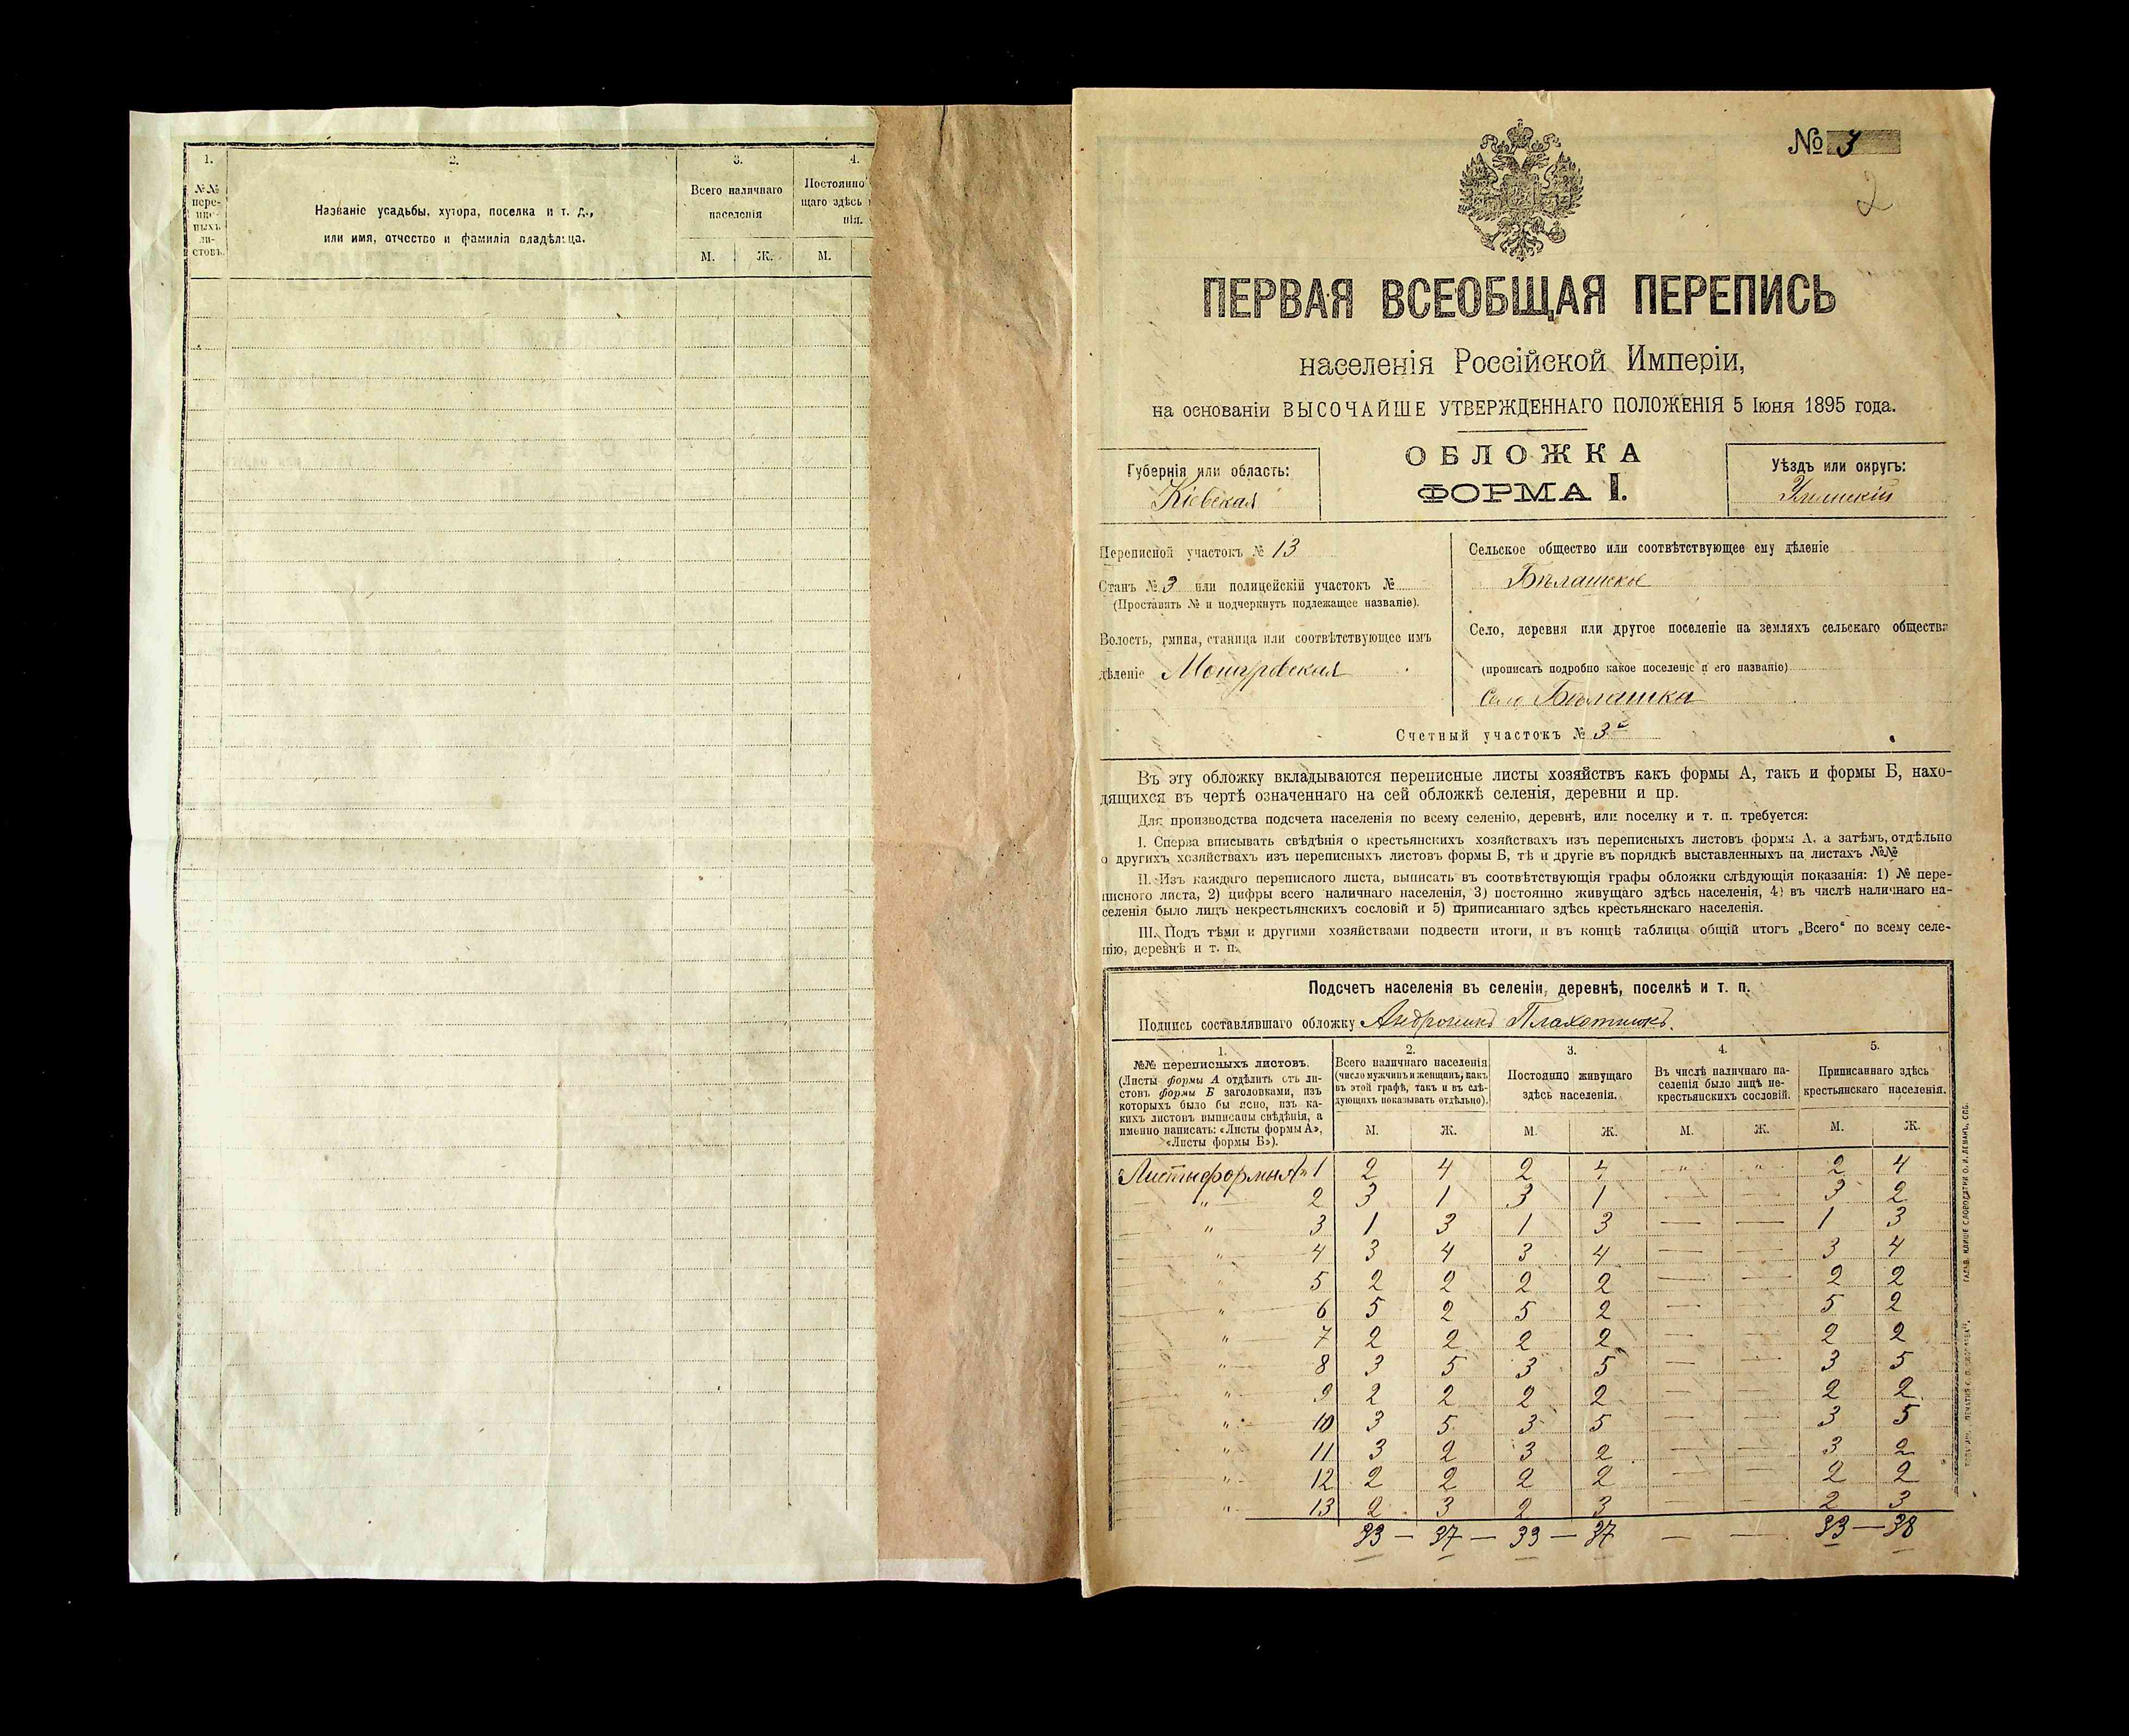 1.
2.
3.
4.
№№ пере-
пис-
ныхъ
ли-
стовъ.
Названіе усадьбы, хутора, поселка и т. д.,
или имя, отчество и фамилія владѣльца.
Всего наличнаго
населенія
Постоянно
щаго здѣсь
нія.
М.
Ж.
М.
№ 3
2
ПЕРВАЯ ВСЕОБЩАЯ ПЕРЕПИСЬ
населенія Россійской Имперіи,
на основаніи ВЫСОЧАЙШЕ УТВЕРЖДЕННАГО ПОЛОЖЕНІЯ 5 Іюня 1895 года.
Губернія или область:
Кіевская
ОБЛОЖКА
ФОРМА I.
Уѣздъ или округъ:
Уманскій
Переписной участокъ № 13
Станъ № 3 или полицейскій участокъ №
(Проставить № и подчеркнуть подлежащее названіе).
Волость, гмина, станица или соотвѣтствующее имъ
дѣленіе
Сельское общество или соотвѣтствующее ему дѣленіе
Бѣлашское
Село, деревня или другое поселеніе на земляхъ сельскаго общества
(прописать подробно какое поселеніе и его названіе)
Село Бѣлашка
Счетный участокъ № 3й
Въ эту обложку вкладываются переписные листы хозяйствъ какъ формы А, такъ и формы Б, нахо-
дящихся въ чертѣ означеннаго на сей обложкѣ селенія, деревни и пр.
Для производства подсчета населенія по всему селенію, деревнѣ, или поселку и т. п. требуется:
I. Сперва вписывать свѣдѣнія о крестьянскихъ хозяйствахъ изъ переписныхъ листовъ формы А, а затѣмъ, отдѣльно
о другихъ хозяйствахъ изъ переписныхъ листовъ формы Б, тѣ и другіе въ порядкѣ выставленныхъ на листахъ №№
II. Изъ каждаго переписного листа, выписать въ соотвѣтствующія графы обложки слѣдующія показанія: 1) № пере-
писного листа, 2) цифры всего наличнаго населенія, 3) постоянно живущаго здѣсь населенія, 4) въ числѣ наличнаго на-
селенія было лицъ некрестьянскихъ сословій и 5) приписаннаго здѣсь крестьянскаго населенія.
III. Подъ тѣми и другими хозяйствами подвести итоги, и въ концѣ таблицы общій итогъ „Всего“ по всему селе-
нію, деревнѣ и т. п.
Подсчетъ населенія въ селеніи, деревнѣ, поселкѣ и т. п.
Подпись составлявшаго обложку Андроникъ Плахотнюкъ.
1.
№№ переписныхъ листовъ.
(Листы формы А отдѣлить отъ ли-
стовъ формы Б заголовками, изъ
которыхъ было бы ясно, изъ ка-
кихъ листовъ выписаны свѣдѣнія, а
именно написать: «Листы формы А»,
«Листы формы Б»).
2.
Всего наличнаго населенія
(число мужчинъ и женщинъ, какъ
въ этой графѣ, такъ и въ слѣ-
дующихъ показывать отдѣльно).
3.
Постоянно живущаго
здѣсь населенія.
4.
Въ числѣ наличнаго на-
селенія было лицъ не-
крестьянскихъ сословій.
5.
Приписаннаго здѣсь
крестьянскаго населенія.
М. Ж. М. Ж. М. Ж. М. Ж.
Листы формы А 1 2 4 2 4 „ „ 2 4
„ 2 3 1 3 1 — — 3 2
„ 3 1 3 1 3 — — 1 3
„ 4 3 4 3 4 — — 3 4
„ 5 2 2 2 2 — — 2 2
„ 6 5 2 5 2 — — 5 2
„ 7 2 2 2 2 — — 2 2
„ 8 3 5 3 5 — — 3 5
„ 9 2 2 2 2 — — 2 2
„ 10 3 5 3 5 — — 3 5
„ 11 3 2 3 2 — — 3 2
„ 12 2 2 2 2 — — 2 2
„ 13 2 3 2 3 — — 2 3
33 — 37 — 33 — 37 — — 33 — 38